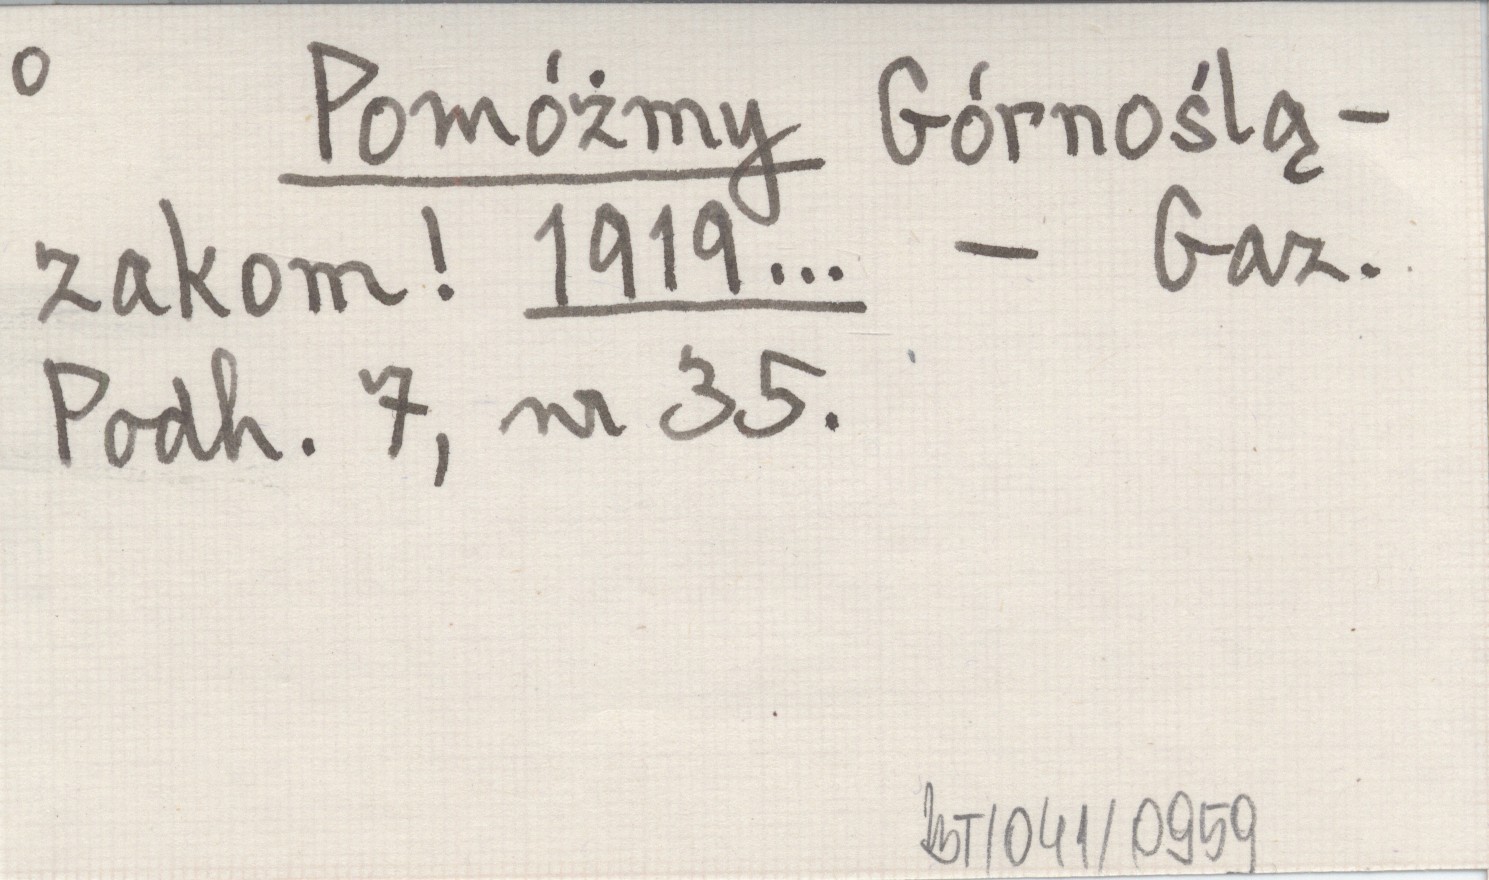 o Pomóżmy Górnoślą-
zakom! 1919... - Gaz.
Podh. 7, nr 35.
BT/041/0959